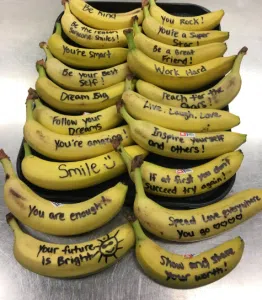 Be Kind
Be the reason
Someone Smiles!
You're Smart
Be Your Best
Self!
Dream Big
Follow your
Dreams
You're amazing
Smile
You are enough
Your future
is Bright
You Rock!
You're a Super
Star!
Be a Great
Friend!
Work Hard
Reach for the
Stars
Live, Laugh, Love
Inspire yourself
and others!
If at first you don't
Succeed try again!
Spread Love everywhere
You go
Show and share
your worth!